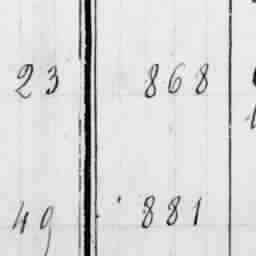 23 868
49 881